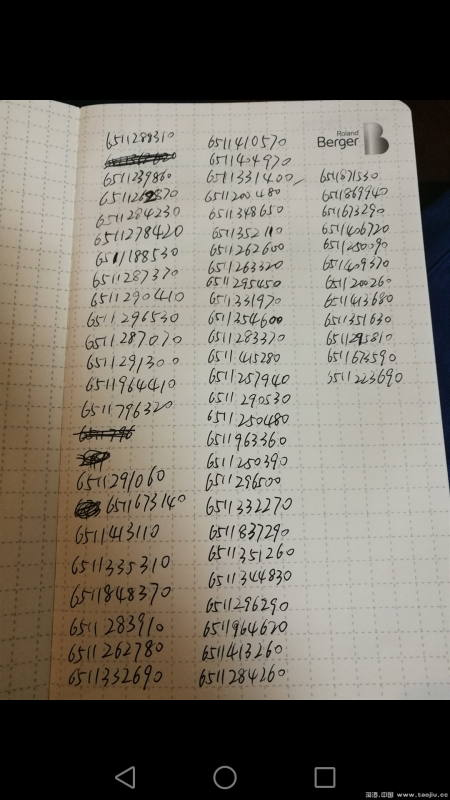 6511288310
6511239860
6511284230
6511278420
6511188530
6511287370
6511290410
6511296530
6511287070
6511291300
6511964410
6511796320
6511796
6511291060
6511673140
6511413110
6511335310
6511848370
6511283910
6511262780
6511332690
6511410570
6511404970
6511331400
6511200480
6511348650
6511352110
6511262600
6511263320
6511295450
6511331970
6511354600
6511283370
6511415280
6511257940
6511290530
6511250480
6511963360
6511250390
6511296500
6511332270
6511837290
6511351260
6511344830
6511296290
6511964620
6511413260
6511284260
Roland
Berger
B
6511871530
6511869940
6511673290
6511406720
6511250090
6511409370
6511200260
6511413680
6511351630
6511295810
6511673590
6511223690
菏酒.中国 www.taojiu.cc